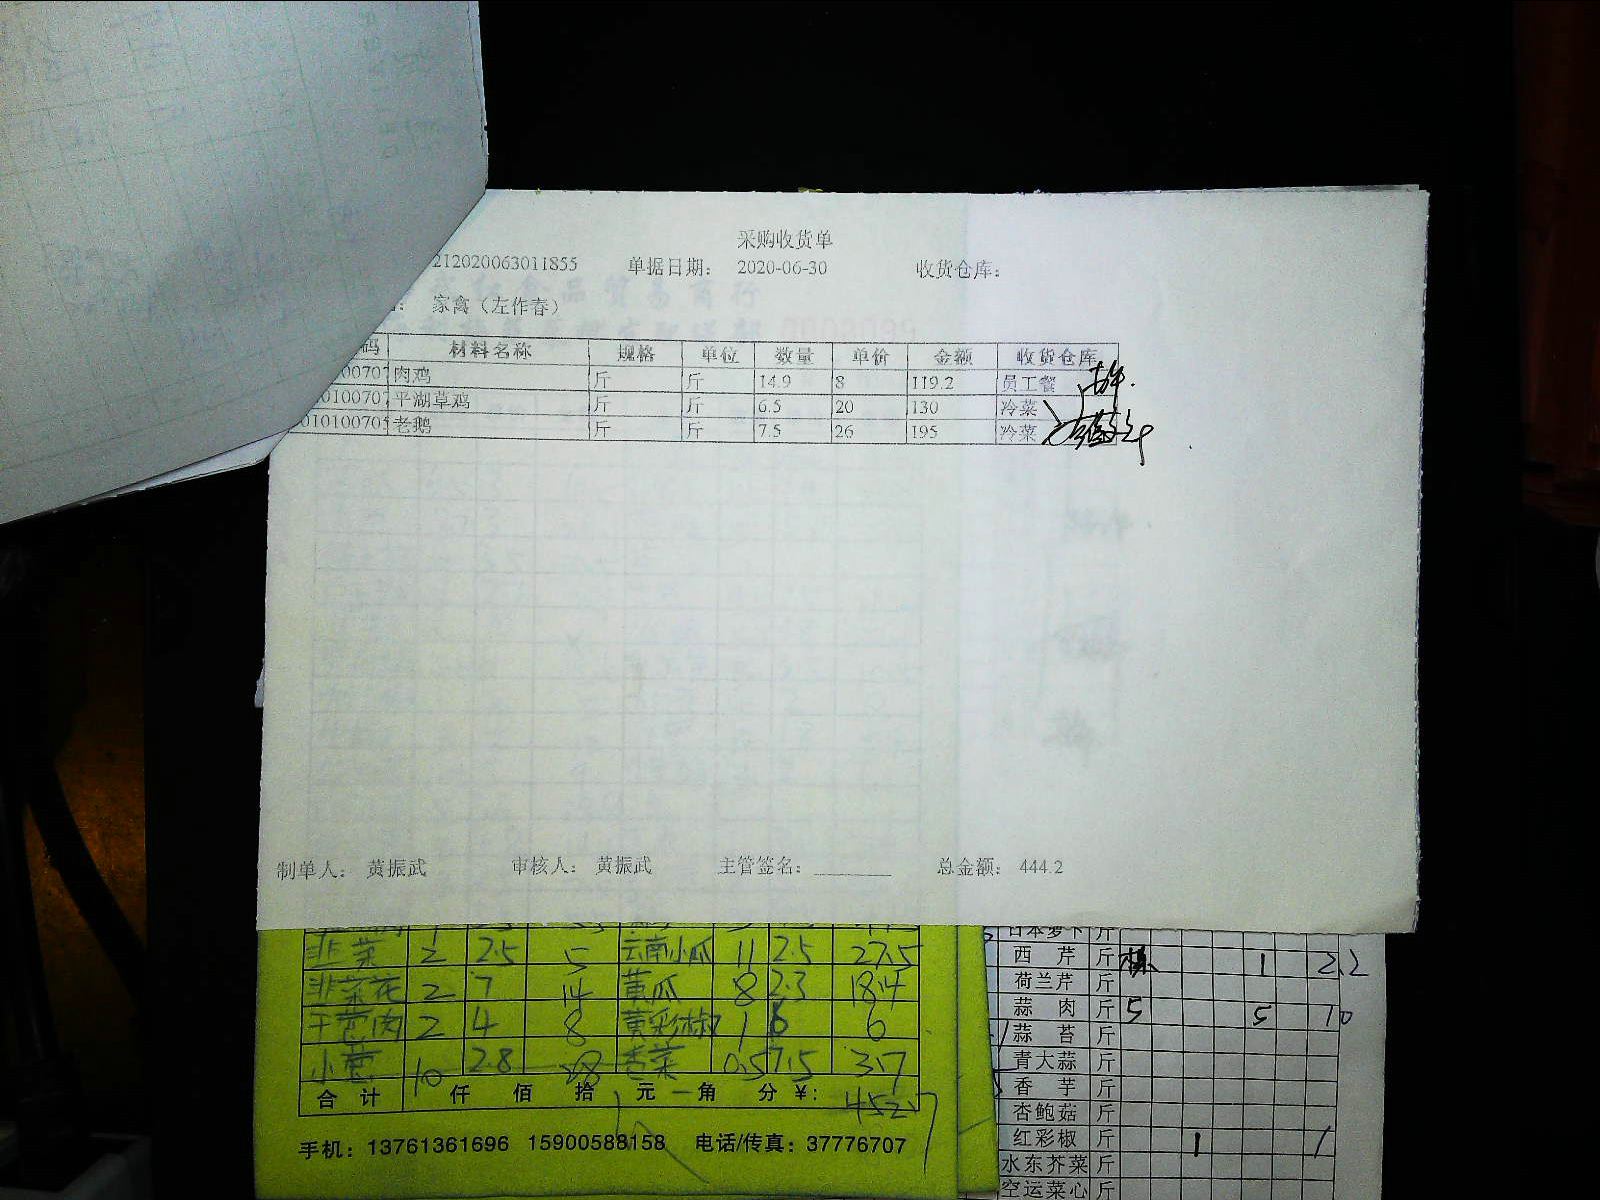 采购收货单
212020063011855 单据日期： 2020-06-30 收货仓库：
家禽（左作春）
码 材料名称 规格 单位 数量 单价 金额 收货仓库
00707 肉鸡 斤 斤 14.9 8 119.2 员工餐
0100707 平湖草鸡 斤 斤 6.5 20 130 冷菜
010100705 老鹅 斤 斤 7.5 26 195 冷菜
制单人： 黄振武 审核人： 黄振武 主管签名： 总金额： 444.2
韭菜 2 2.5 5 云南小瓜 11 2.5 27.5
韭菜花 2 7 14 黄瓜 8 2.3 18.4
干葱肉 2 4 8 黄彩椒 1 6 6
小葱 10 2.8 28 香菜 0.5 7.5 3.7
合计 仟 佰 拾 元 角 分 ¥:
手机：13761361696 15900588158 电话/传真：37776707
日本萝卜 斤
西芹 斤 1 2.2
荷兰芹 斤
蒜肉 斤 5 5 10
蒜苔 斤
青大蒜 斤
香芋 斤
杏鲍菇 斤
红彩椒 斤 1 1
水东芥菜 斤
空运菜心 斤